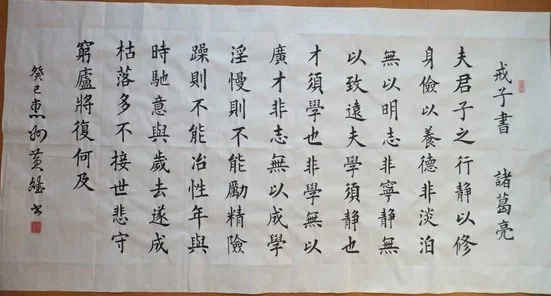 戒子書 諸葛亮
夫君子之行静以修
身儉以養德非淡泊
無以明志非寧静無
以致遠夫學須静也
才須學也非學無以
廣才非志無以成學
淫慢則不能勵精險
躁則不能冶性年與
時馳意與歲去遂成
枯落多不接世悲守
窮廬將復何及
癸巳惠州黄 书